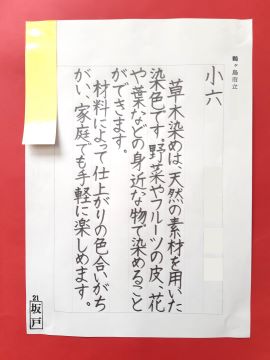 鶴ヶ島市立
小六
草木染めは、天然の素材を用いた
染色です。野菜やフルーツの皮、花
や葉などの身近な物で染めること
ができます。
材料によって仕上がりの色合いがち
がい、家庭でも手軽に楽しめます。
21
坂戸